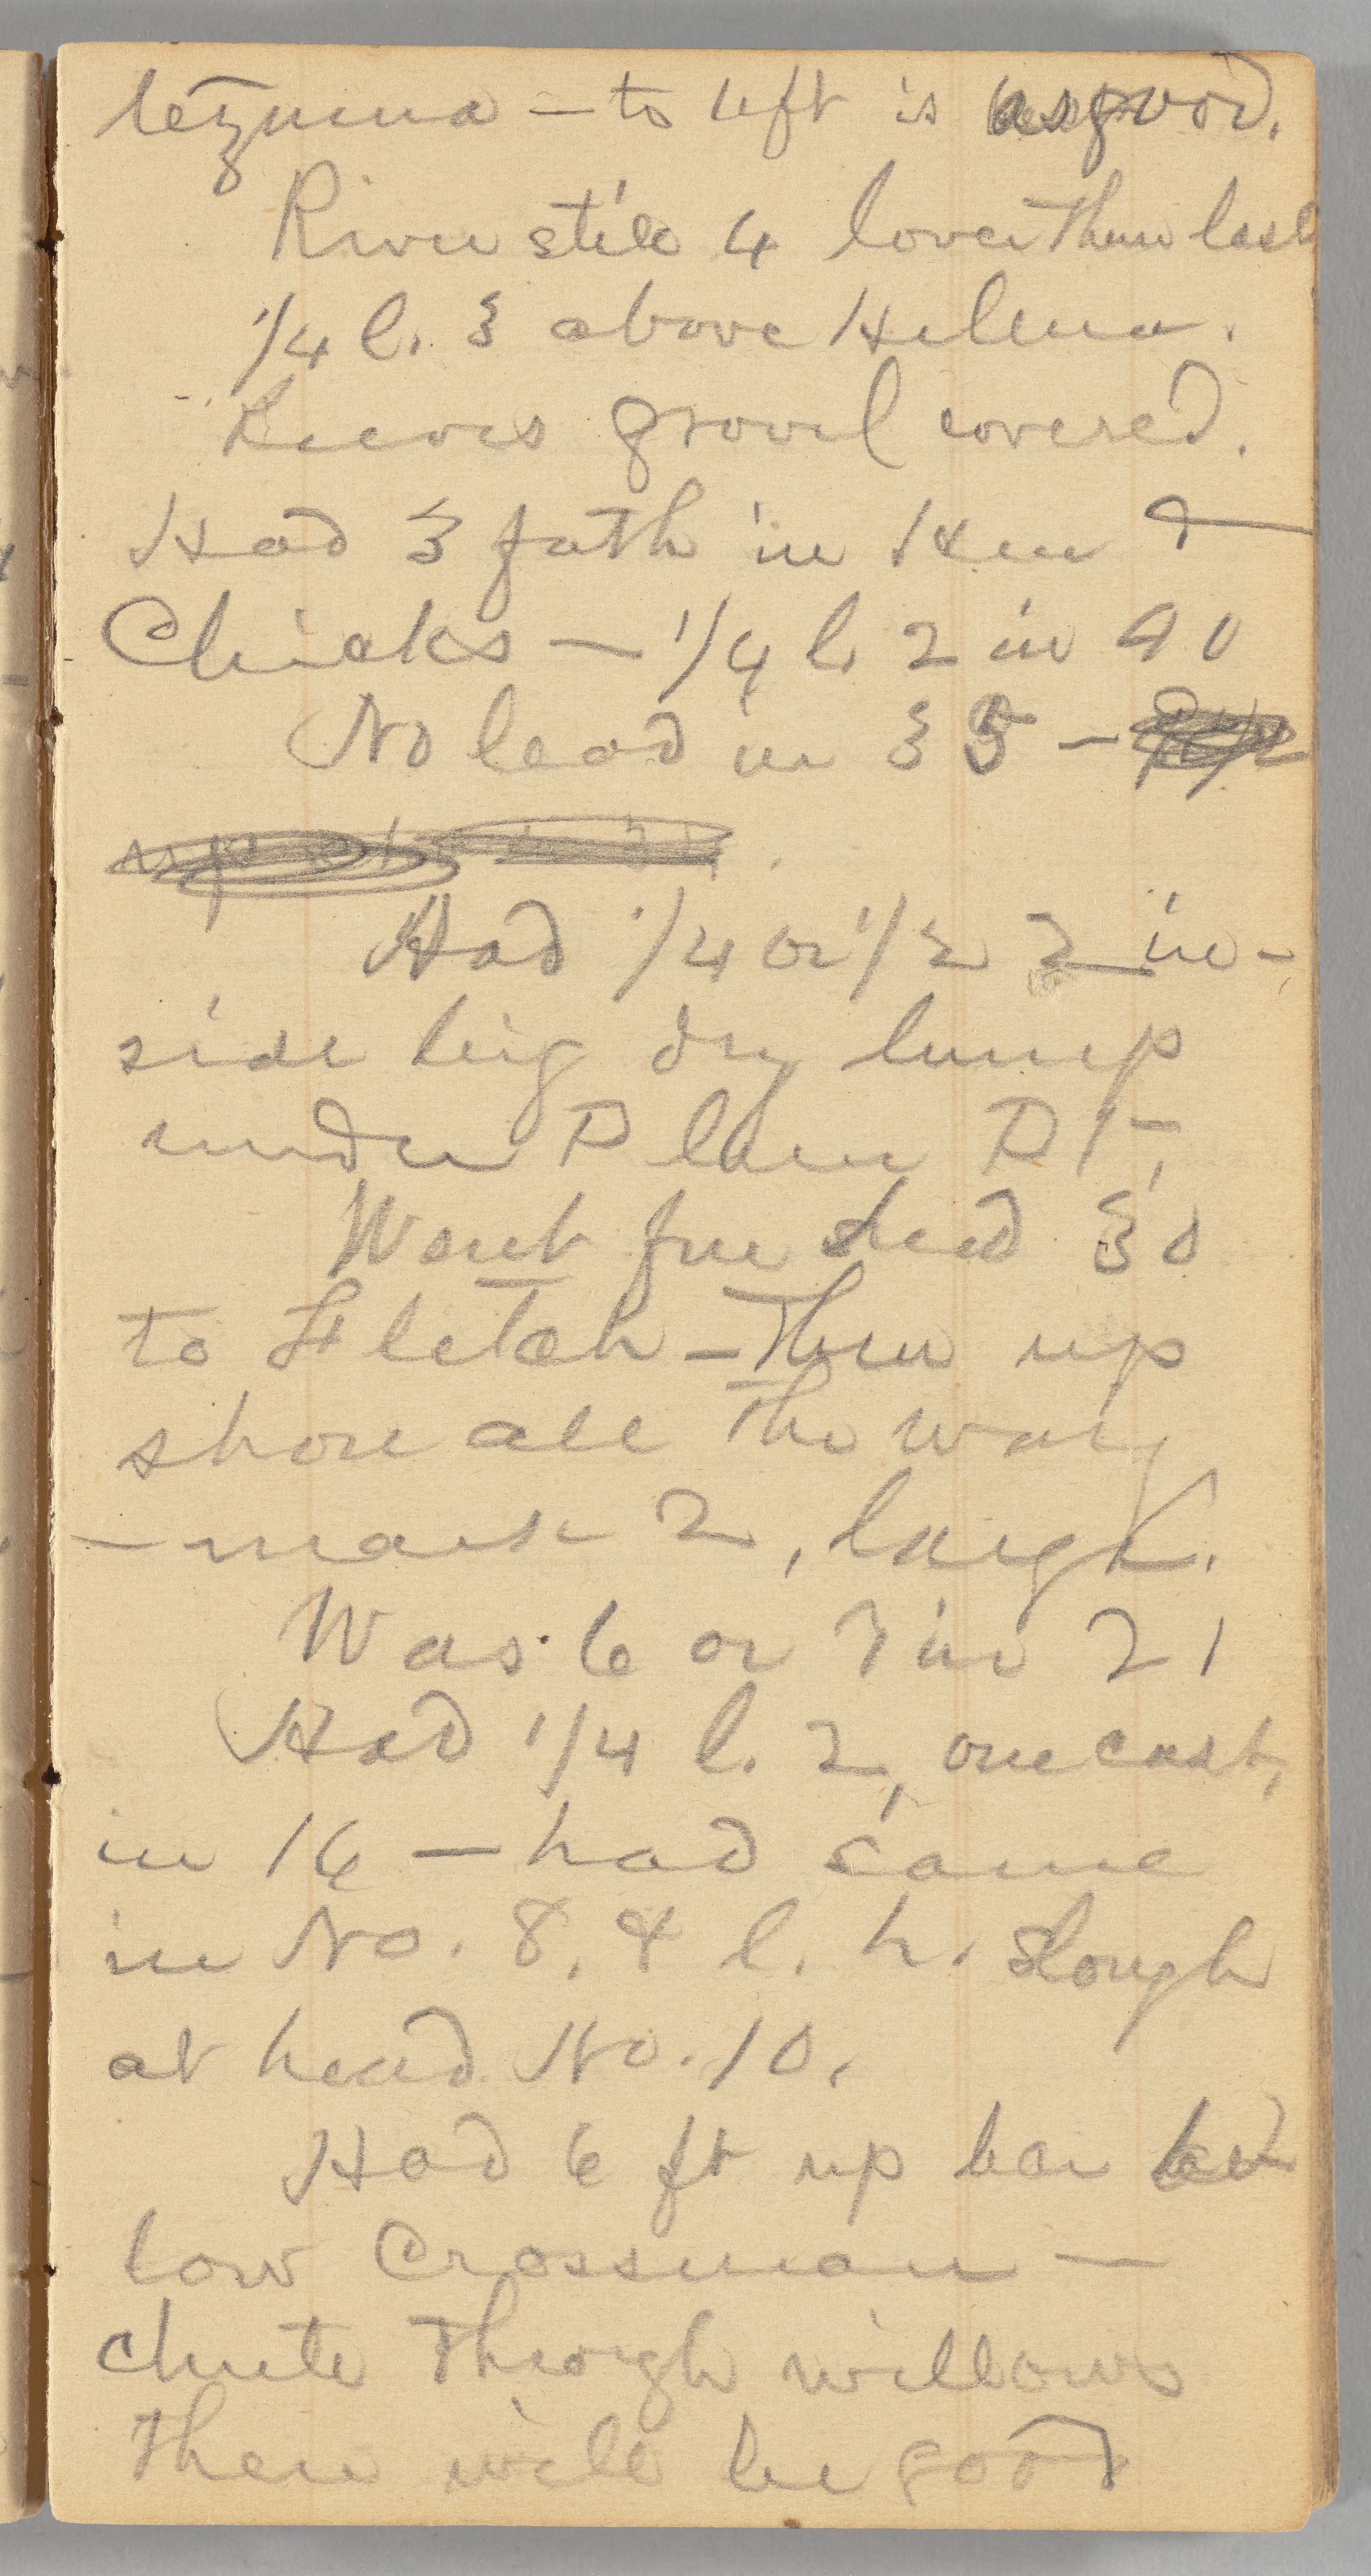 tezuma — to left is as good.
River still 4 lower than last
1/4 l. 3 above Helena.
Reeves gravel covered.
Had 3 fath in Hen &
Chicks — 1/4 l. 2 in 40
No lead in 35 —
Had 1/4 or 1/2 2 in-
side big dry lump
under Plum Pt,
Went fm head 30
to Fletch — Then up
shore all the way
— mark 2, larg't.
Was 6 or 7 in 21
Had 1/4 l. 2, one cast,
in 16 — had same
in No. 8, & l. h. slough
at head No. 10.
Had 6 ft up bar be
low Crossman —
chute through willows
there will be good